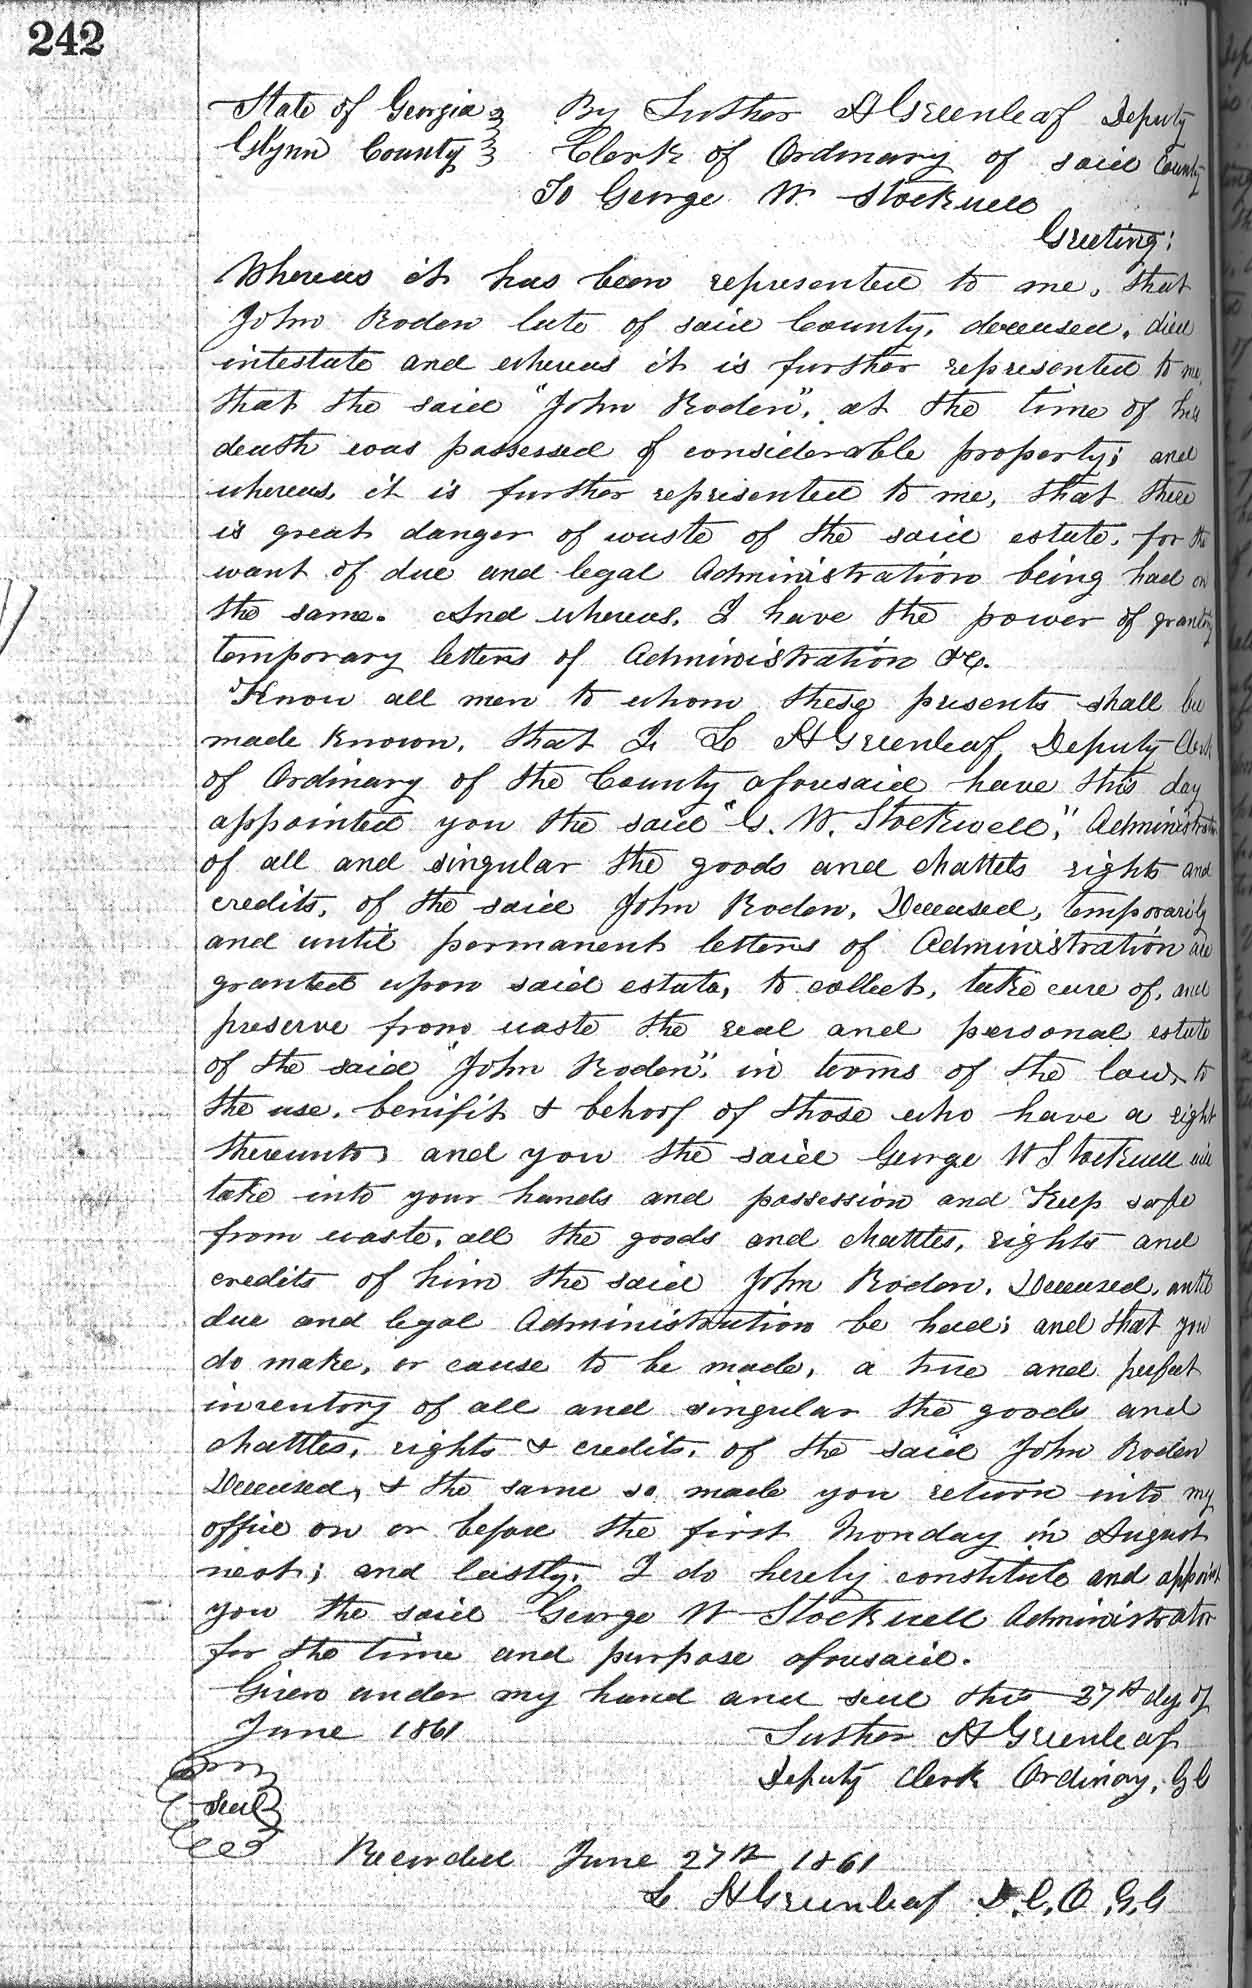 242
State of Georgia } By Luther H Greenleaf Deputy
Glynn County } Clerk of Ordinary of said County
To George W. Stockwell
Greeting:
Whereas it has been represented to me, that
John Roden late of said County, deceased, died
intestate and whereas it is further represented to me,
that the said "John Roden", at the time of his
death was possessed of considerable property; and
whereas, it is further represented to me, that there
is great danger of waste of the said estate, for the
want of due and legal Administration being had on
the same. And whereas, I have the power of granting
temporary letters of Administration &c.
Know all men to whom these presents shall be
made known, that I, L H Greenleaf, Deputy Clerk
of Ordinary of the County aforesaid have this day
appointed you the said "G. W. Stockwell," Administrator
of all and singular the goods and chattels rights and
credits, of the said John Roden, Deceased, temporarily
and until permanent letters of Administration are
granted upon said estate, to collect, take care of, and
preserve from waste the real and personal estate
of the said "John Roden", in terms of the law, to
the use, benifit & behoof of those who have a right
thereunto; and you the said George W Stockwell will
take into your hands and possession and Keep safe
from waste, all the goods and chattles, rights and
credits of him the said John Roden, Deceased, until
due and legal Administration be had; and that you
do make, or cause to be made, a true and perfect
inventory of all and singular the goods and
chattles, rights & credits, of the said John Roden
Deceased, & the same so made you return into my
office on or before the first Monday in August
next; and lastly, I do herely constitute and appoint
you the said George W Stockwell Administrator
for the time and purpose aforesaid.
Given under my hand and seal this 27th dy of
June 1861 Luther H Greenleaf
Deputy Clerk Ordinary, G C
Seal
Recorded June 27th 1861
L H Greenleaf D. C. O. G. C